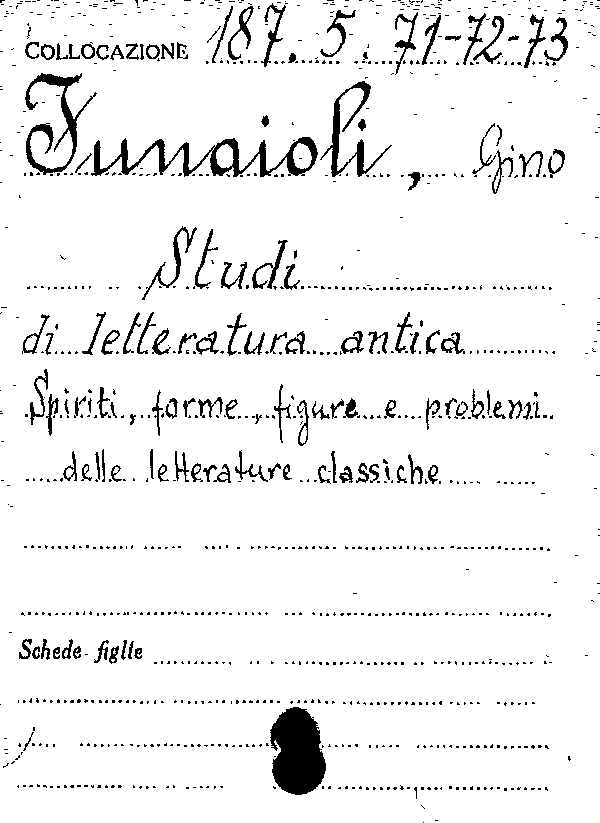 COLLOCAZIONE 187. 5. 71-72-73
Funaioli, Gino
Studi
di letteratura antica
Spiriti, forme, figure e problemi
delle letterature classiche
Schede figlie